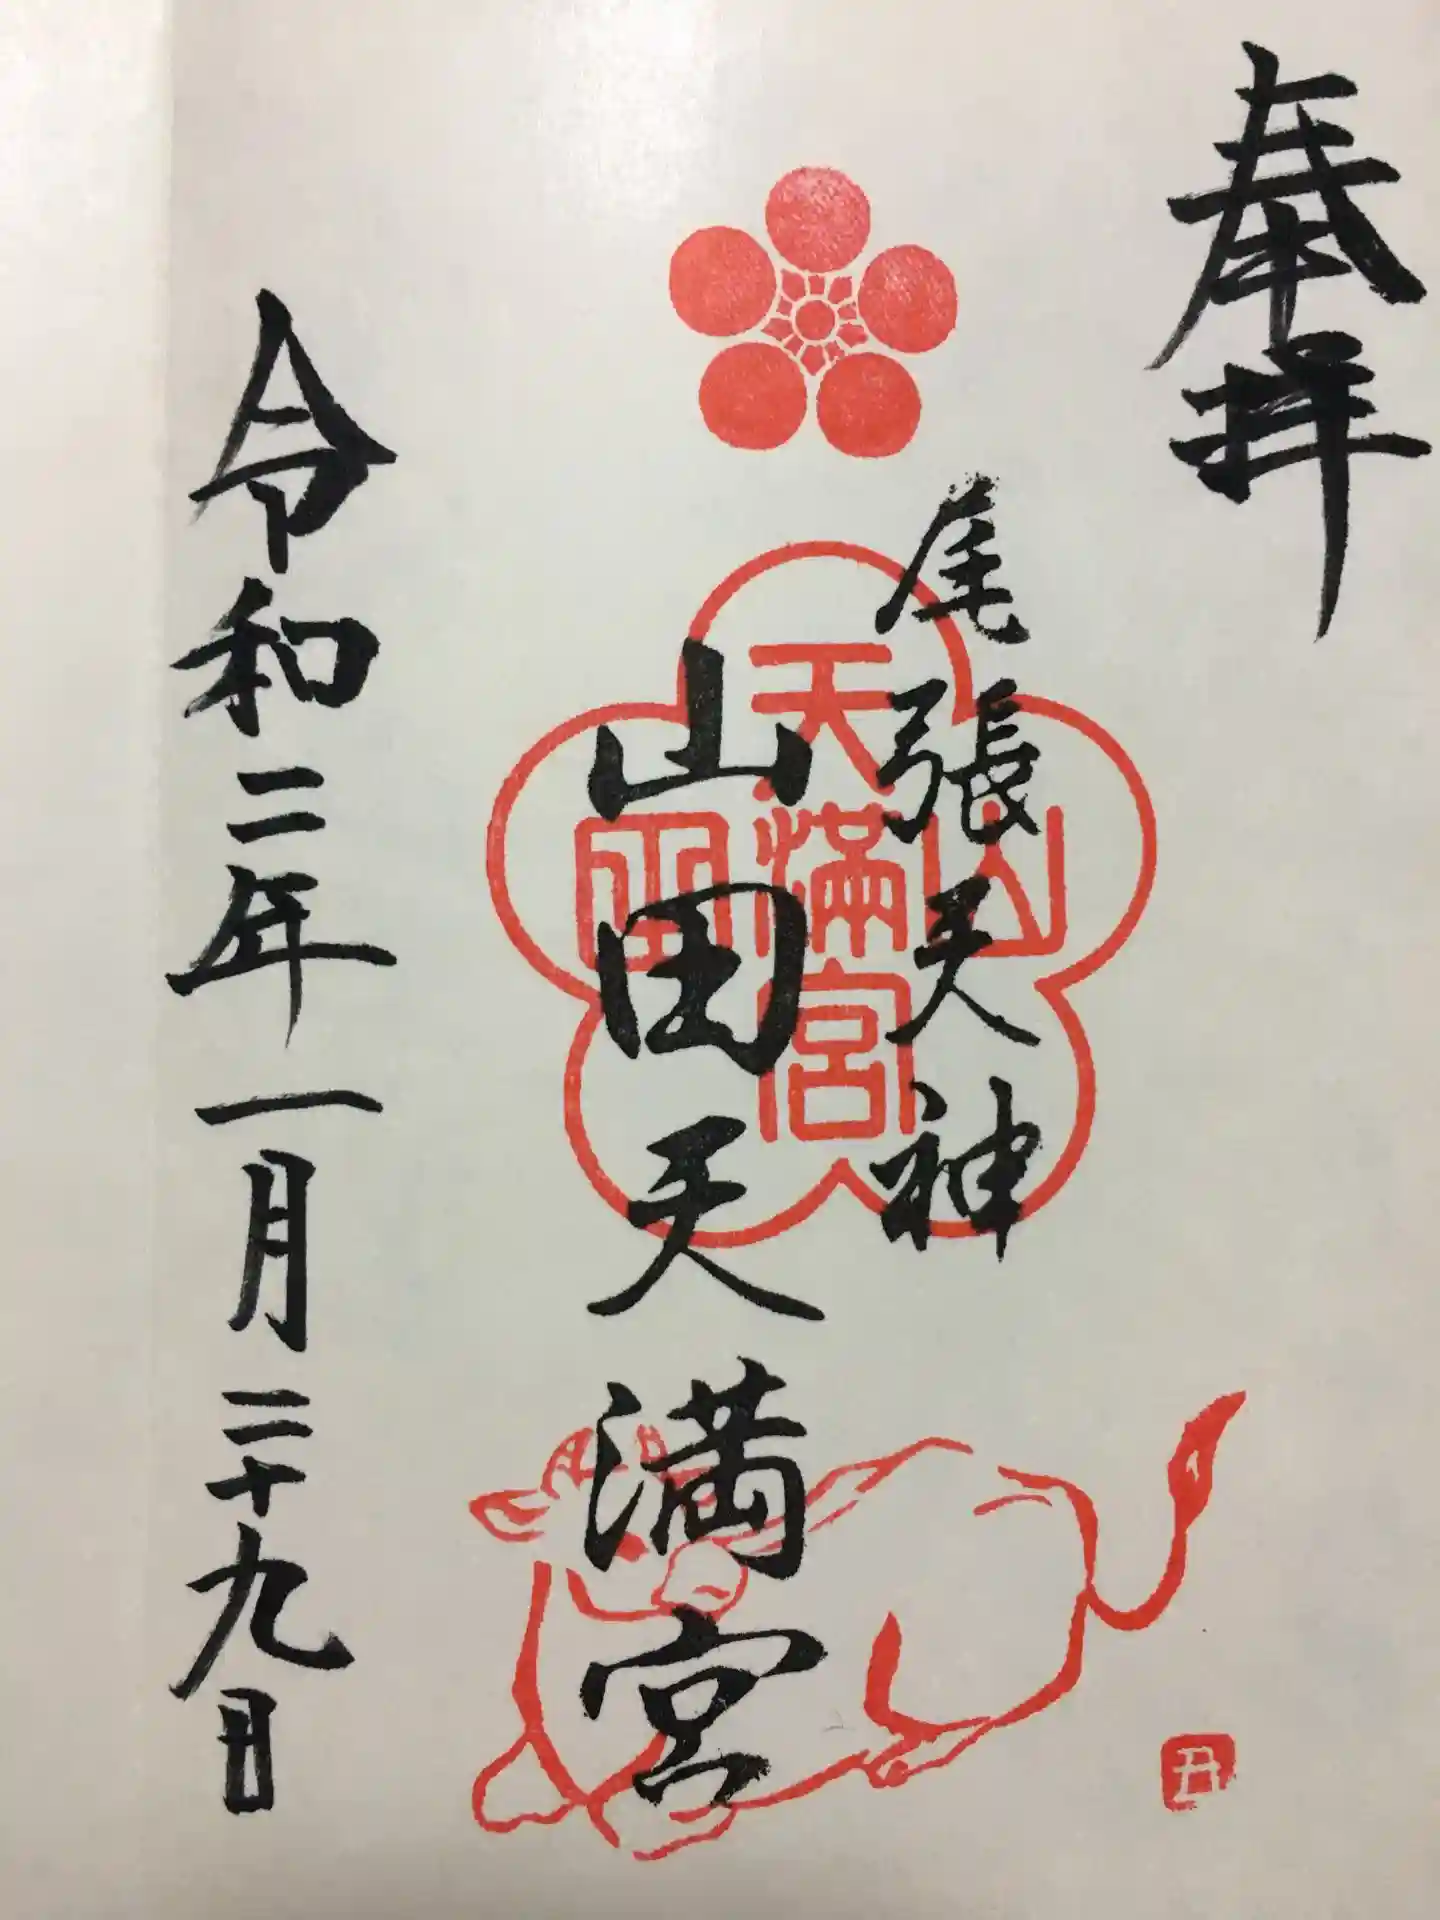 奉拝
尾張天神
山田天満宮
山田天満宮
令和二年一月二十九日
丑